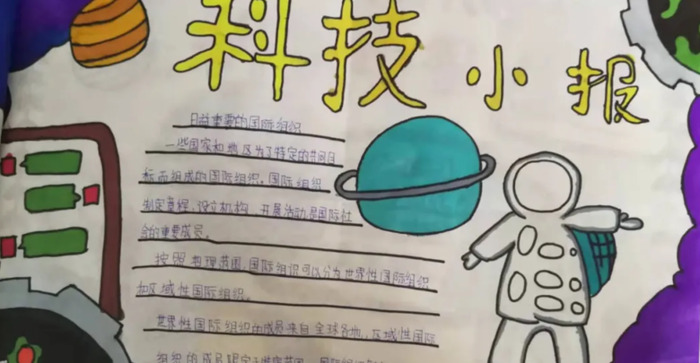 科技小报
日益重要的国际组织
一些国家和地区为了特定的共同目
标而组成的国际组织。国际组织
制定章程,设立机构,开展活动是国际社
会的重要成员。
按照地理范围,国际组织可以分为世界性国际组织
和区域性国际组织。
世界性国际组织的成员来自全球各地,区域性国际
组织的成员限定于